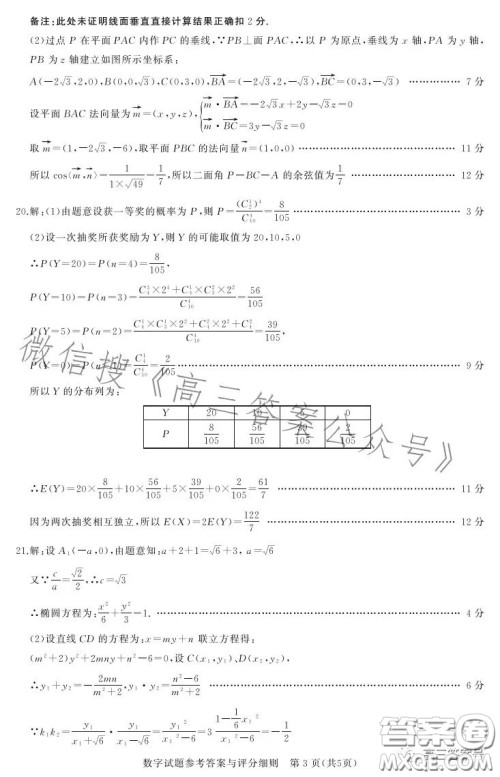 备注:此处未证明线面垂直直接计算结果正确扣2分.
(2)过点 P 在平面 PAC 内作 PC 的垂线,∵PB⊥面 PAC,∴以 P 为原点,垂线为 x 轴,PA 为 y 轴,
PB 为 z 轴建立如图所示坐标系:
A(-2√3,2,0),B(0,0,√3),C(0,3,0),BA=(-2√3,2,-√3),BC=(0,3,-√3) …………… 7分
设平面 BAC 法向量为 m=(x,y,z), { m·BA=-2√3x+2y-√3z=0
m·BC=3y-√3z=0
取 m=(1,-2√3,-6),取平面 PBC 的法向量 n=(1,0,0) …………… 11分
所以 cos(m,n)=1/(1×√49)=1/7,所以二面角 P-BC-A 的余弦值为 1/7 …………… 12分
20.解:(1)由题意设获一等奖的概率为 P,则 P=(C₂¹)⁴/C₁₀⁴=8/105 …………… 3分
(2)设一次抽奖所获奖励为 Y,则 Y 的可能取值为 20,10,5,0
∴P(Y=20)=P(n=4)=8/105,
=56/105
P(Y=5)=P(n=2)=
=39/105,
=2/105 …………… 9分
所以 Y 的分布列为:
Y 20 10 5 0
P 8/105 56/105 39/105 2/105
∴E(Y)=20×8/105+10×56/105+5×39/105+0×2/105=61/7 …………… 11分
因为两次抽奖相互独立,所以 E(X)=2E(Y)=122/7 …………… 12分
21.解:设 A₁(-a,0),由题意知:a+2+1=√6+3, a=√6
又∵c/a=√2/2,∴c=√3
∴椭圆方程为:x²/6+y²/3=1. …………… 4分
(2)设直线 CD 的方程为:x=my+n 联立方程得:
(m²+2)y²+2mny+n²-6=0,设 C(x₁,y₁)、D(x₂,y₂),
∴y₁+y₂=-2mn/(m²+2),y₁·y₂=(n²-6)/(m²+2) …………… 6分
=-1/2
数学试题参考答案与评分细则 第3页(共5页)
微信搜《高三答案公众号》
答案圈
MXQE.COM